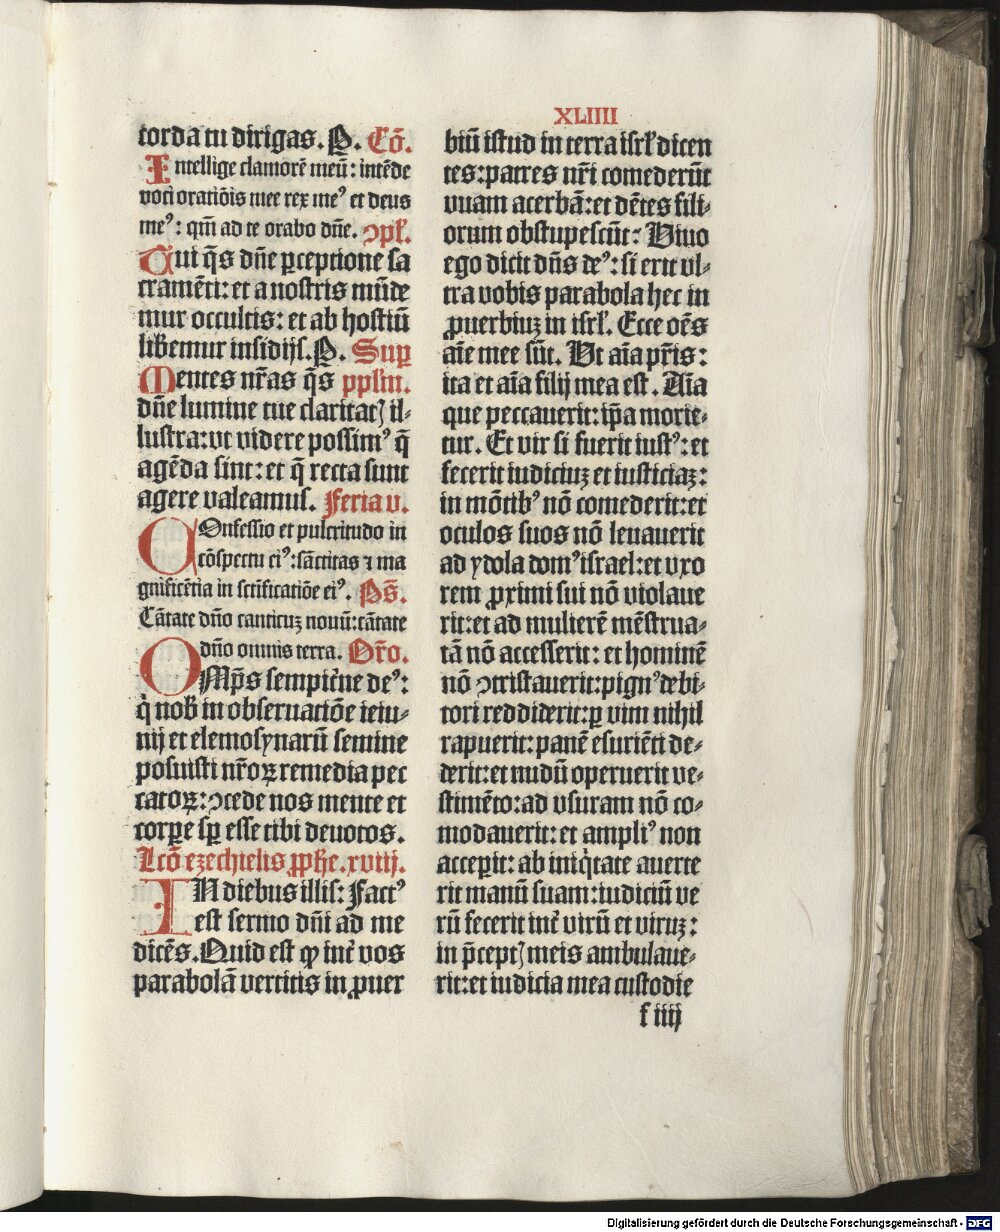 XLIIII
corda tu dirigas. P. Cō.
Intellige clamorē meū: intēde
voci oratiōis mee rex me⁹ et deus
me⁹: qm̄ ad te orabo dn̄e. ꝯpl̄.
Tui q̄s dn̄e ꝑceptione sa
cramēti: et a nostris mūde
mur occultis: et ab hostiū
liberemur insidijs. P. Suꝑ
Mentes nr̄as q̄s ppl̄m.
dn̄e lumine tue claritatꝭ il-
lustra: vt videre possim⁹ q̄
agēda sint: et q̄ recta sunt
agere valeamus. Feria v.
COnfessio et pulcritudo in
cōspectu ei⁹: sāctitas ⁊ ma
gnificētia in sctificatiōe ei⁹. Ps̄.
Cātate dn̄o canticuꝫ nouū: cātate
dn̄o omnis terra. Or̄o.
OMp̄s sempit̄ne de⁹:
q̇ nob̄ in obseruatiōe ieiu-
nij et elemosynarū semine
posuisti nr̄oꝝ remedia pec
catoꝝ: ꝯcede nos mente et
corꝑe sꝑ esse tibi deuotos.
Lcō ezechielis ꝓph̄e. xviij.
IN diebus illis: Fact⁹
est sermo dn̄i ad me
dicēs. Quid est ꝙ int̄ vos
parabolā vertitis in ꝓuer
biū istud in terra isrl̄ dicen
tes: patres nr̄i comederūt
vuam acerbā: et dētes fili-
orum obstupescūt: Viuo
ego dicit dn̄s de⁹: si erit vl-
tra vobis parabola hec in
ꝓuerbiuꝫ in isrl̄. Ecce oēs
aīe mee sūt. Vt aīa pr̄is:
ita et aīa filij mea est. Aīa
que peccauerit: ip̄a morie-
tur. Et vir si fuerit iust⁹: et
fecerit iudiciuꝫ et iusticiaꝫ:
in mōtib⁹ nō comederit: et
oculos suos nō leuauerit
ad ydola dom⁹ israel: et vxo
rem ꝓximi sui nō violaue
rit: et ad mulierē mēstrua-
tā nō accesserit: et hominē
nō ꝯtristauerit: pign⁹ debi-
tori reddiderit: ꝑ vim nihil
rapuerit: panē esuriēti de-
derit: et nudū operuerit ve-
stimēto: ad vsuram nō co-
modauerit: et ampli⁹ non
acceꝑit: ab iniq̇tate auerte
rit manū suam: iudiciū ve
rū fecerit int̄ virū et viruꝫ:
in p̄ceptꝭ meis ambulaue-
rit: et iudicia mea custodie
f iiij
Digitalisierung gefördert durch die Deutsche Forschungsgemeinschaft - DFG